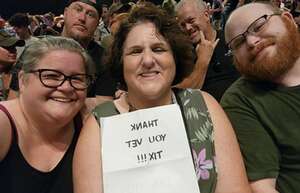 THANK
YOU VET
TIX!!!